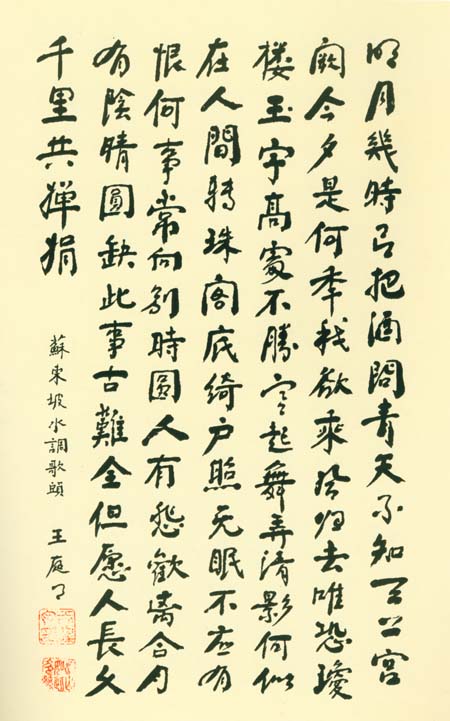 明月幾時有把酒問青天不知天上宮
闕今夕是何年我欲乘风归去唯恐瓊
楼玉宇高處不勝寒起舞弄清影何似
在人間转珠阁底绮户照无眠不应有
恨何事常向别時圓人有悲歡离合月
有陰晴圓缺此事古難全但愿人長久
千里共婵娟
蘇東坡水調歌頭
王庭